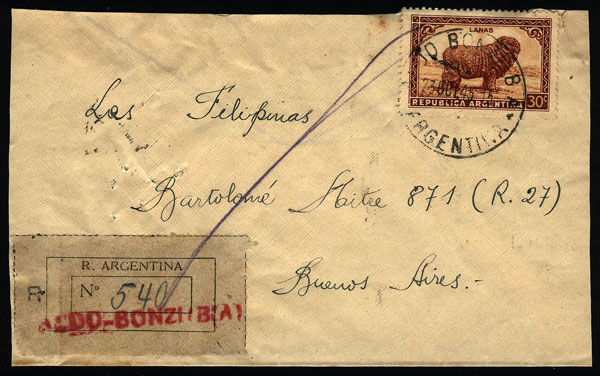 LANAS
REPUBLICA ARGENTINA 30c
DO BONZI B.A.
23 OCT 45
ARGENTINA
Las Filipinas
Bartolomé Mitre 871 (R. 27)
Buenos Aires.-
R. ARGENTINA
Nº 540
ALDO-BONZI (B.A)